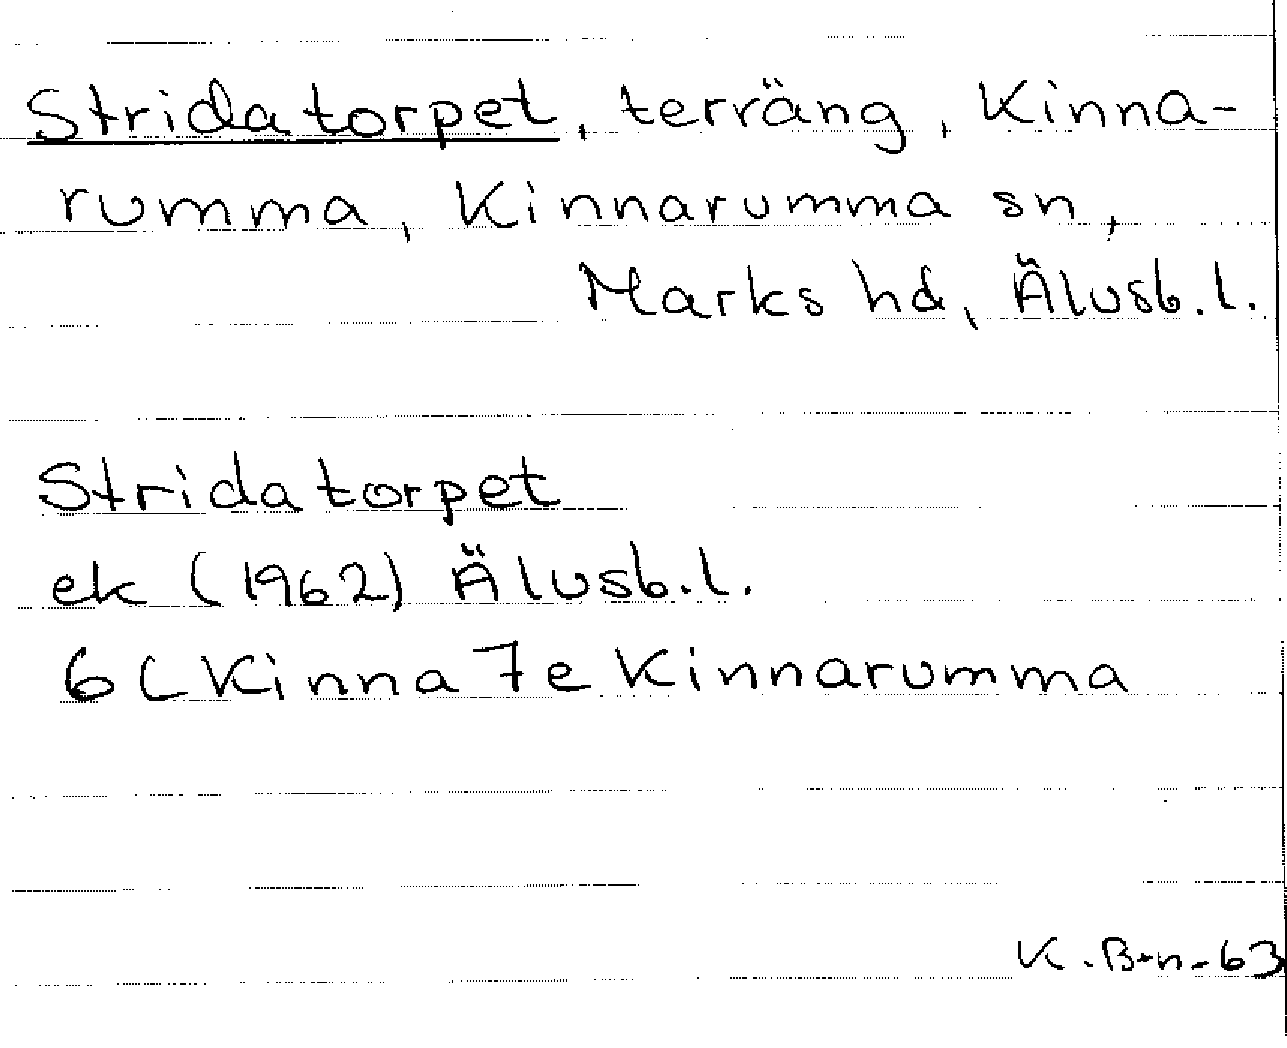 Stridatorpet, terräng, Kinna-
rumma, Kinnarumma sn,
Marks hd, Älvsb.l.
Stridatorpet
ek (1962) Älvsb.l.
6C Kinna 7e Kinnarumma
K.B-n-63